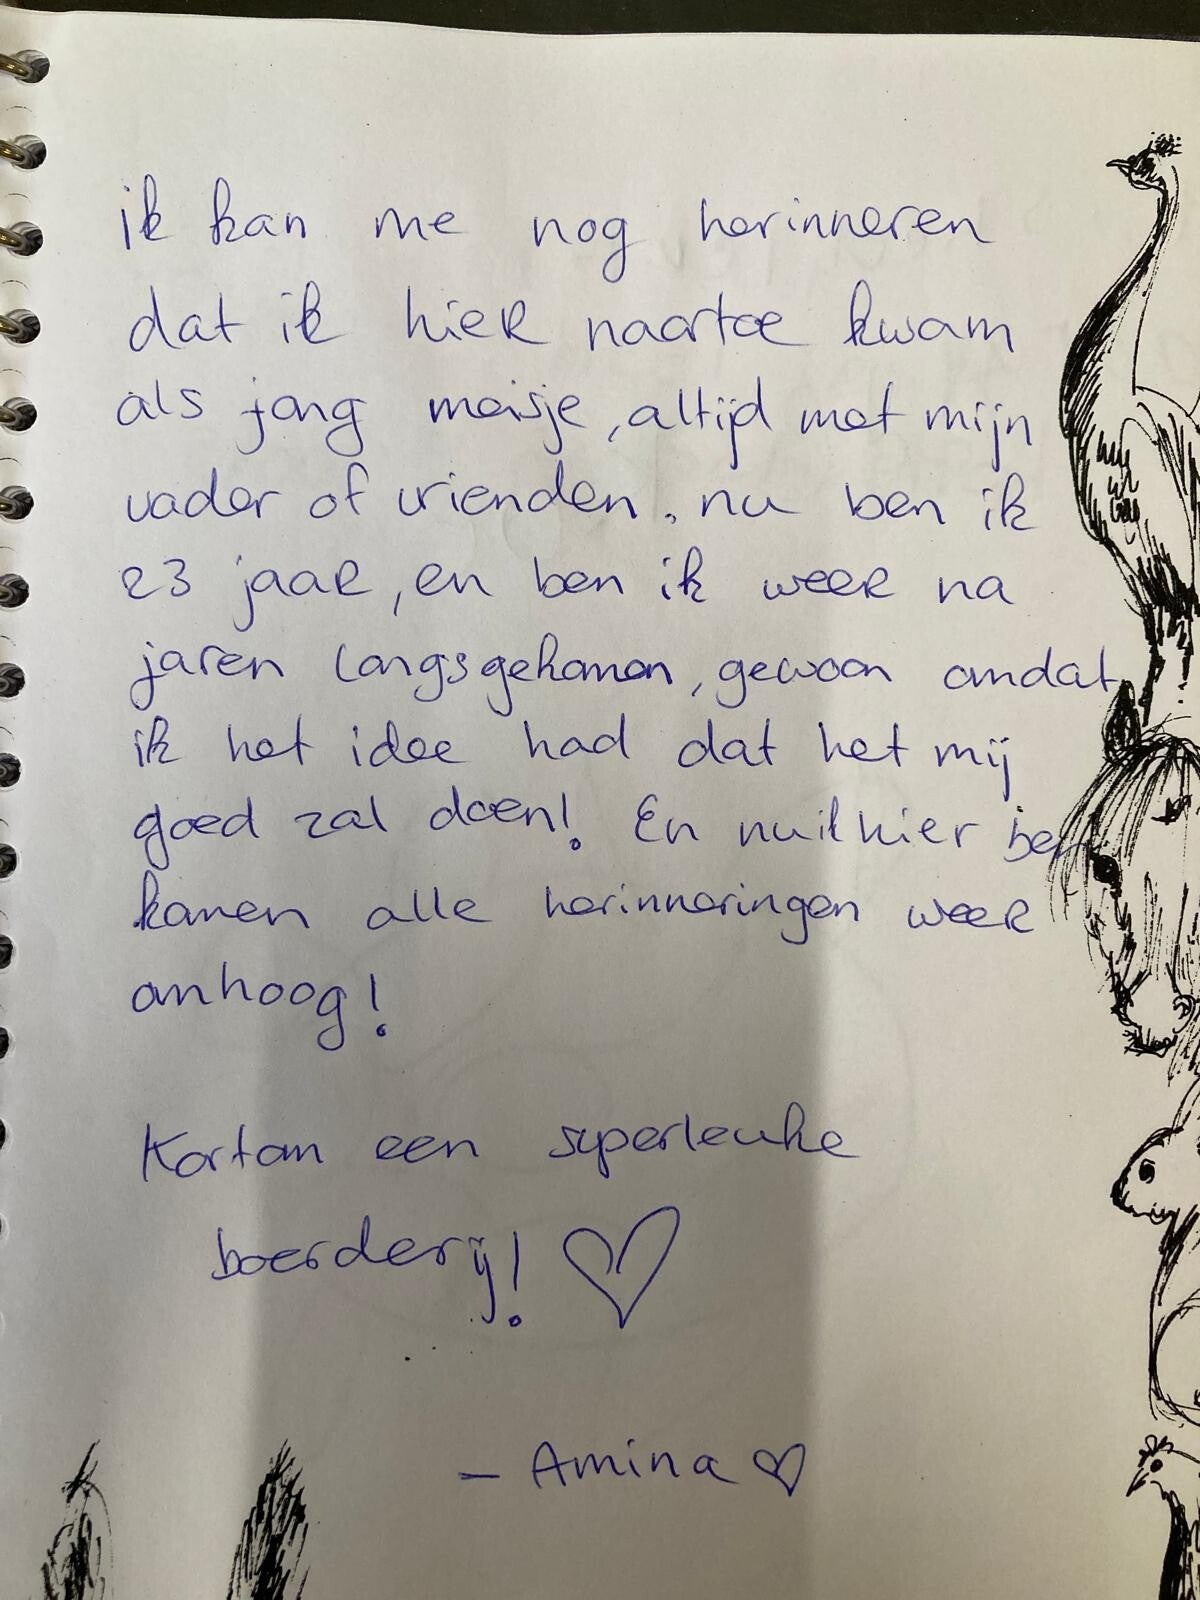 ik kan me nog herinneren
dat ik hier naartoe kwam
als jong meisje, altijd met mijn
vader of vrienden. nu ben ik
23 jaar, en ben ik weer na
jaren langsgekomen, gewoon omdat
ik het idee had dat het mij
goed zal doen! En nu ik hier ben
komen alle herinneringen weer
omhoog!
Kortom een superleuke
boerderij! ♡
– Amina ♡